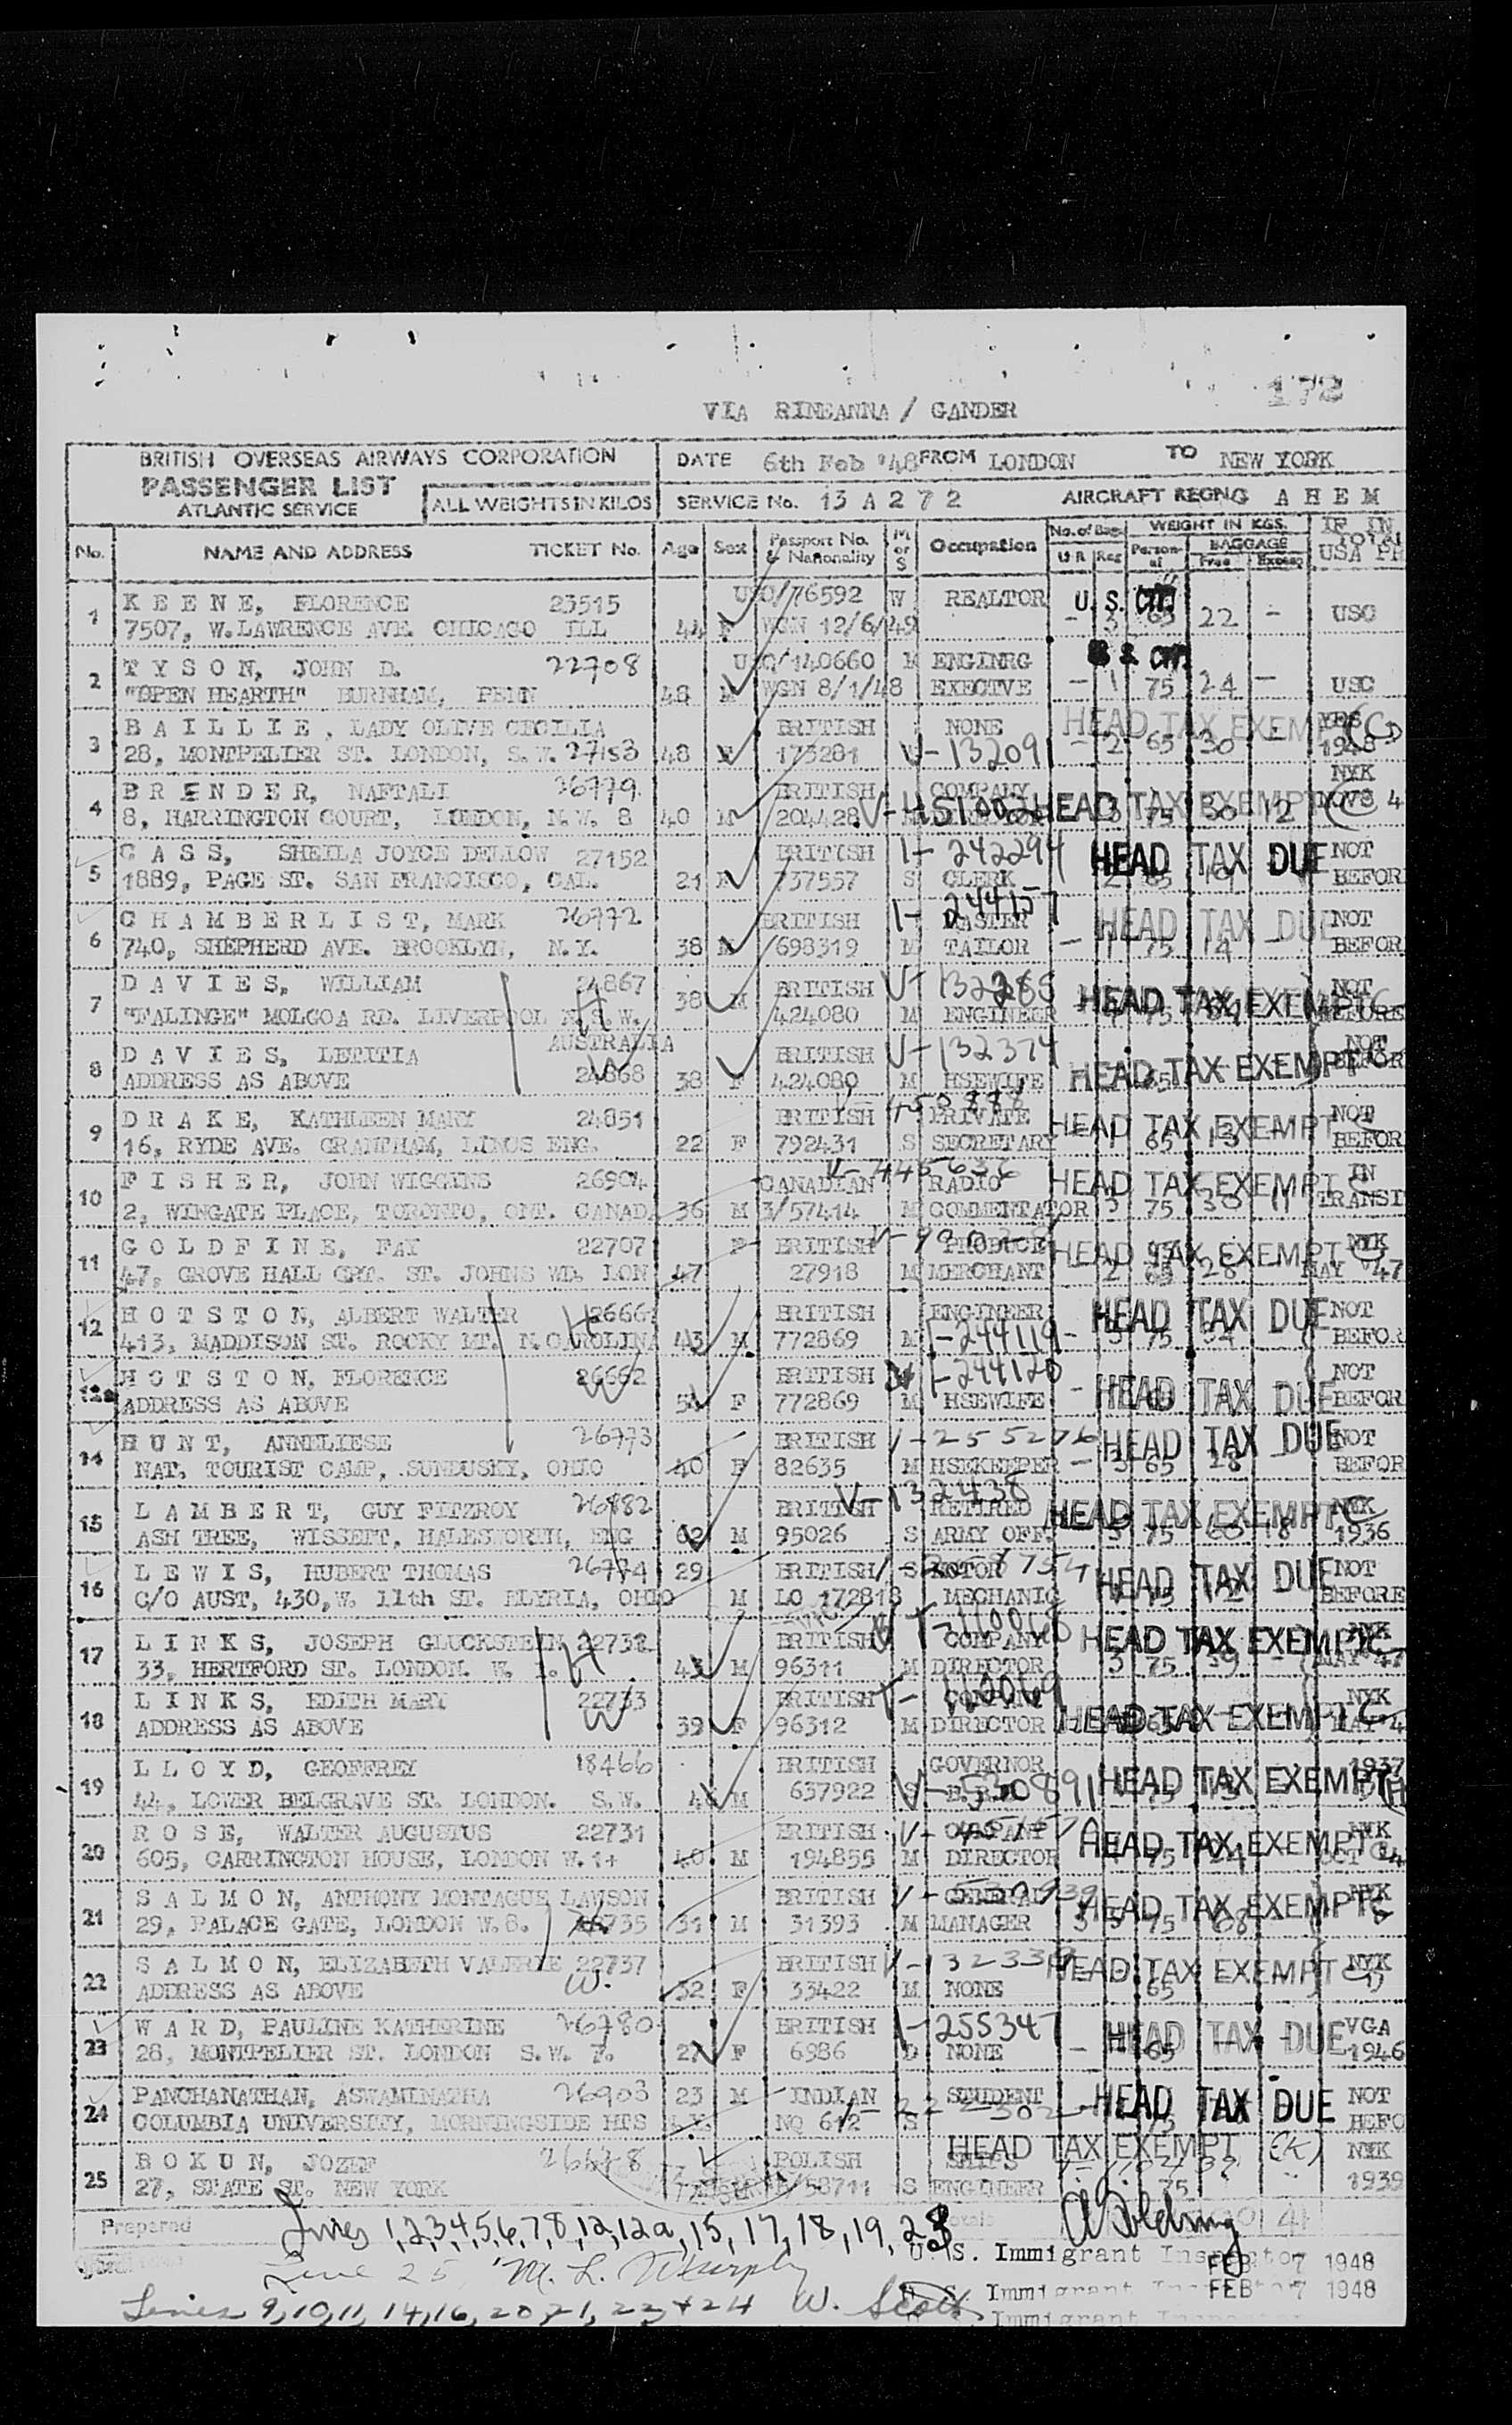 172
VIA RINEANNA / GANDER
BRITISH OVERSEAS AIRWAYS CORPORATION
PASSENGER LIST
ATLANTIC SERVICE
ALL WEIGHTS IN KILOS
DATE 6th Feb '48 FROM LONDON TO NEW YORK
SERVICE No. 13 A 2 7 2 AIRCRAFT REGN G A H E M
No. NAME AND ADDRESS TICKET No. Age Sex Passport No. & Nationality M or S Occupation No. of Bags U R Reg WEIGHT IN KGS. Personal BAGGAGE Free Excess IF IN USA PR
1 K E E N E, FLORENCE 23515 /76592 W REALTOR U. S. CIT.
7507, W. LAWRENCE AVE. CHICAGO ILL 44 F WGN 12/6/49 - 3 65 22 - USC
2 T Y S O N, JOHN D. 22708 /140660 M ENGINRG
"OPEN HEARTH" BURNHAM, PENN 48 M WGN 8/1/48 EXECTVE - 1 75 24 - USC
3 B A I L L I E, LADY OLIVE CECILIA BRITISH NONE HEAD TAX EXEMPT YRS
28, MONTPELIER ST. LONDON, S.W. 27153 48 F 173281 V-132091 - 2 65 30 - 1948
4 B R E N D E R, NAFTALI 26779 BRITISH COMPANY NYK
8, HARRINGTON COURT, LONDON, N.W. 8 40 M 204428 HEAD TAX EXEMPT 3 75 30 12
5 SHEILA JOYCE DELLOW 27152 BRITISH I-242294 HEAD TAX DUE NOT
1889, PAGE ST. SAN FRANCISCO, CAL. 21 F 737557 S CLERK BEFOR
6 C H A M B E R L I S T, MARK 26772 BRITISH I-244157 MASTER HEAD TAX DUE NOT
740, SHEPHERD AVE. BROOKLYN, N.Y. 38 M 698319 M TAILOR - 1 75 14 - BEFOR
7 D A V I E S, WILLIAM 24867 BRITISH V-132285 NOT
"FALINGE" MOLGOA RD. LIVERPOOL N.S.W. 38 M 424080 M ENGINEER HEAD TAX EXEMPT BEFORE
AUSTRALIA
8 D A V I E S, LETITIA BRITISH V-132374 NOT
ADDRESS AS ABOVE 24868 38 F 424080 M HSEWIFE HEAD TAX EXEMPT BEFOR
9 D R A K E, KATHLEEN MARY 24851 BRITISH PRIVATE HEAD TAX EXEMPT NOT
16, RYDE AVE. GRANTHAM, LINCS ENG. 22 F 792431 S SECRETARY 65 BEFOR
10 F I S H E R, JOHN WIGGINS 26904 CANADIAN V-445636 RADIO HEAD TAX EXEMPT IN
2, WINGATE PLACE, TORONTO, ONT. CANADA 36 M 3/57414 M COMMENTATOR 3 75 30 11 TRANSIT
11 G O L D F I N E, FAY 22707 F BRITISH PRODUCE HEAD TAX EXEMPT NYK
47, GROVE HALL CRT. ST. JOHNS WD. LON 47 27918 M MERCHANT 2 65 28 MAY 47
12 H O T S T O N, ALBERT WALTER H 26661 BRITISH ENGINEER HEAD TAX DUE NOT
413, MADDISON ST. ROCKY MT. N. CAROLINA 43 M 772869 M I-244119 75 BEFOR
12a H O T S T O N, FLORENCE 26662 BRITISH I-244120 NOT
ADDRESS AS ABOVE W 54 F 772869 M HSEWIFE - HEAD TAX DUE BEFOR
14 H U N T, ANNELIESE 26773 BRITISH I-255276 HEAD TAX DUE NOT
NAT. TOURIST CAMP, SUNDUSKY, OHIO 40 F 82635 M HSEKEEPER - 3 65 28 BEFOR
15 L A M B E R T, GUY FITZROY 26882 BRITISH V-132438 RETIRED HEAD TAX EXEMPT NYK
ASH TREE, WISSETT, HALESWORTH, ENG 62 M 95026 S ARMY OFF. 3 75 60 18 1936
16 L E W I S, HUBERT THOMAS 26774 29 BRITISH MOTOR HEAD TAX DUE NOT
C/O AUST, 430, W. 11th ST. ELYRIA, OHIO M LO 172818 MECHANIC 75 BEFORE
17 L I N K S, JOSEPH GLUCKSTEIN 22732 H BRITISH T-110068 COMPANY HEAD TAX EXEMPT NYK
33, HERTFORD ST. LONDON. W. 1. 43 M 96311 M DIRECTOR 3 75 39 - MAY 47
18 L I N K S, EDITH MARY 22733 BRITISH T-110069 COMPANY NYK
ADDRESS AS ABOVE W 39 F 96312 M DIRECTOR HEAD TAX EXEMPT MAY 4
19 L L O Y D, GEOFFREY 18466 BRITISH GOVERNOR 1937
44, LOWER BELGRAVE ST. LONDON. S.W. 46 M 637922 V-530891 HEAD TAX EXEMPT
20 R O S E, WALTER AUGUSTUS 22731 BRITISH COMPANY HEAD TAX EXEMPT NYK
605, CARRINGTON HOUSE, LONDON W.1 40 M 194855 M DIRECTOR 75 OCT
21 S A L M O N, ANTHONY MONTAGUE LAWSON BRITISH V-530939 GENERAL HEAD TAX EXEMPT NYK
29, PALACE GATE, LONDON W.8. 31 M 31393 M MANAGER 75
22 S A L M O N, ELIZABETH VALERIE 22737 BRITISH HEAD TAX EXEMPT NYK
ADDRESS AS ABOVE W. 32 F 33422 M NONE 65
23 W A R D, PAULINE KATHERINE 26780 BRITISH I-255347 HEAD TAX DUE VGA
28, MONTPELIER ST. LONDON S.W. 7. 27 F 6986 D NONE - 65 1946
24 PANCHANATHAN, ASWAMINATHA 26903 23 M INDIAN STUDENT HEAD TAX DUE NOT
COLUMBIA UNIVERSITY, MORNINGSIDE HTS NQ 612 S BEFO
25 B O K U N, JOZEF POLISH SHIPS HEAD TAX EXEMPT (K) NYK
27, STATE ST. NEW YORK /58711 S ENGINEER 75 1939
Prepared
Lines 1,2,3,4,5,6,7,8,12,12a,15,17,18,19,23
U. S. Immigrant Inspector FEB 7 1948
Line 25 M. L. Murphy
U. S. Immigrant Inspector FEB 7 1948
Lines 9,10,11,14,16,20,21,22,+24 W. Scott
Immigrant Inspector